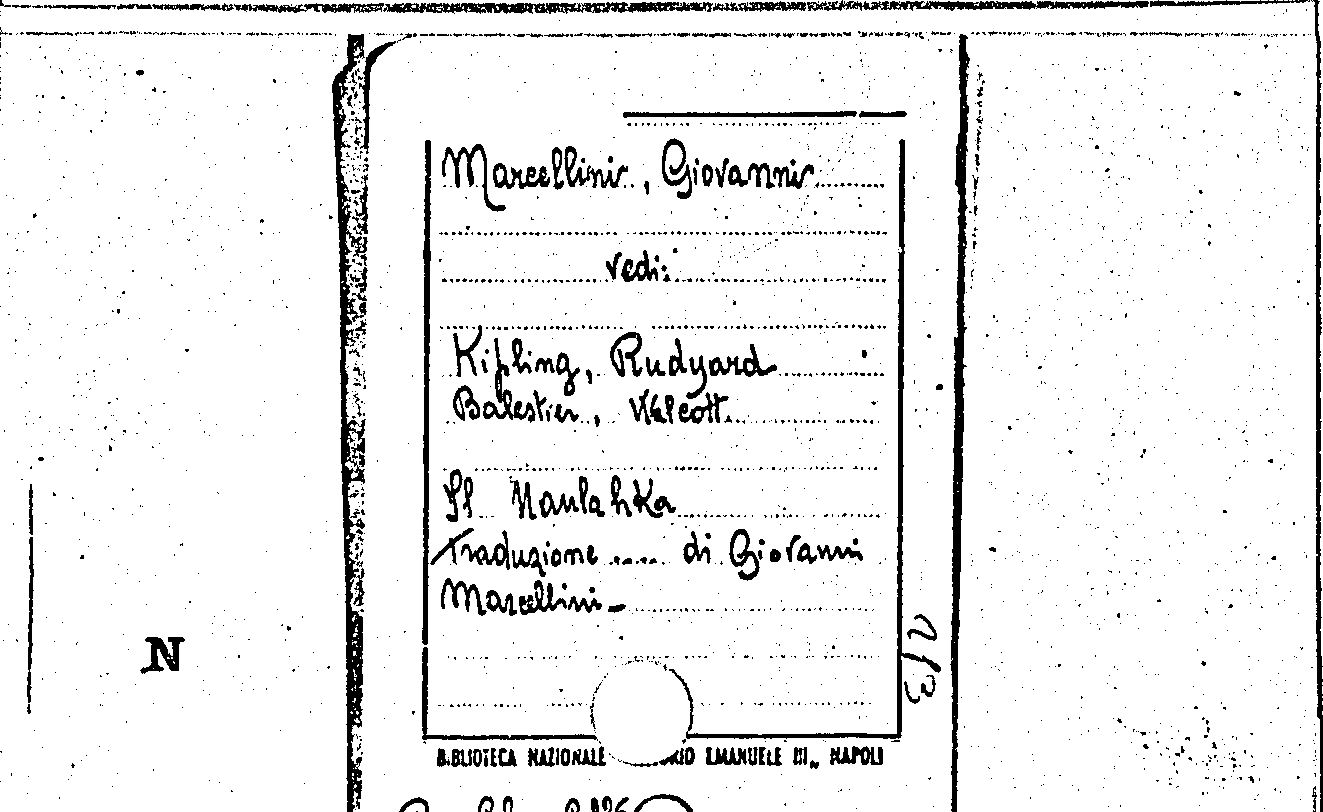 Marcellini, Giovanni
vedi:
Kipling, Rudyard
Balestier, Walcott.
Il Naulahka
Traduzione ..... di Giovanni
Marcellini -
2/3
N
BIBLIOTECA NAZIONALE EMANUELE III„ NAPOLI